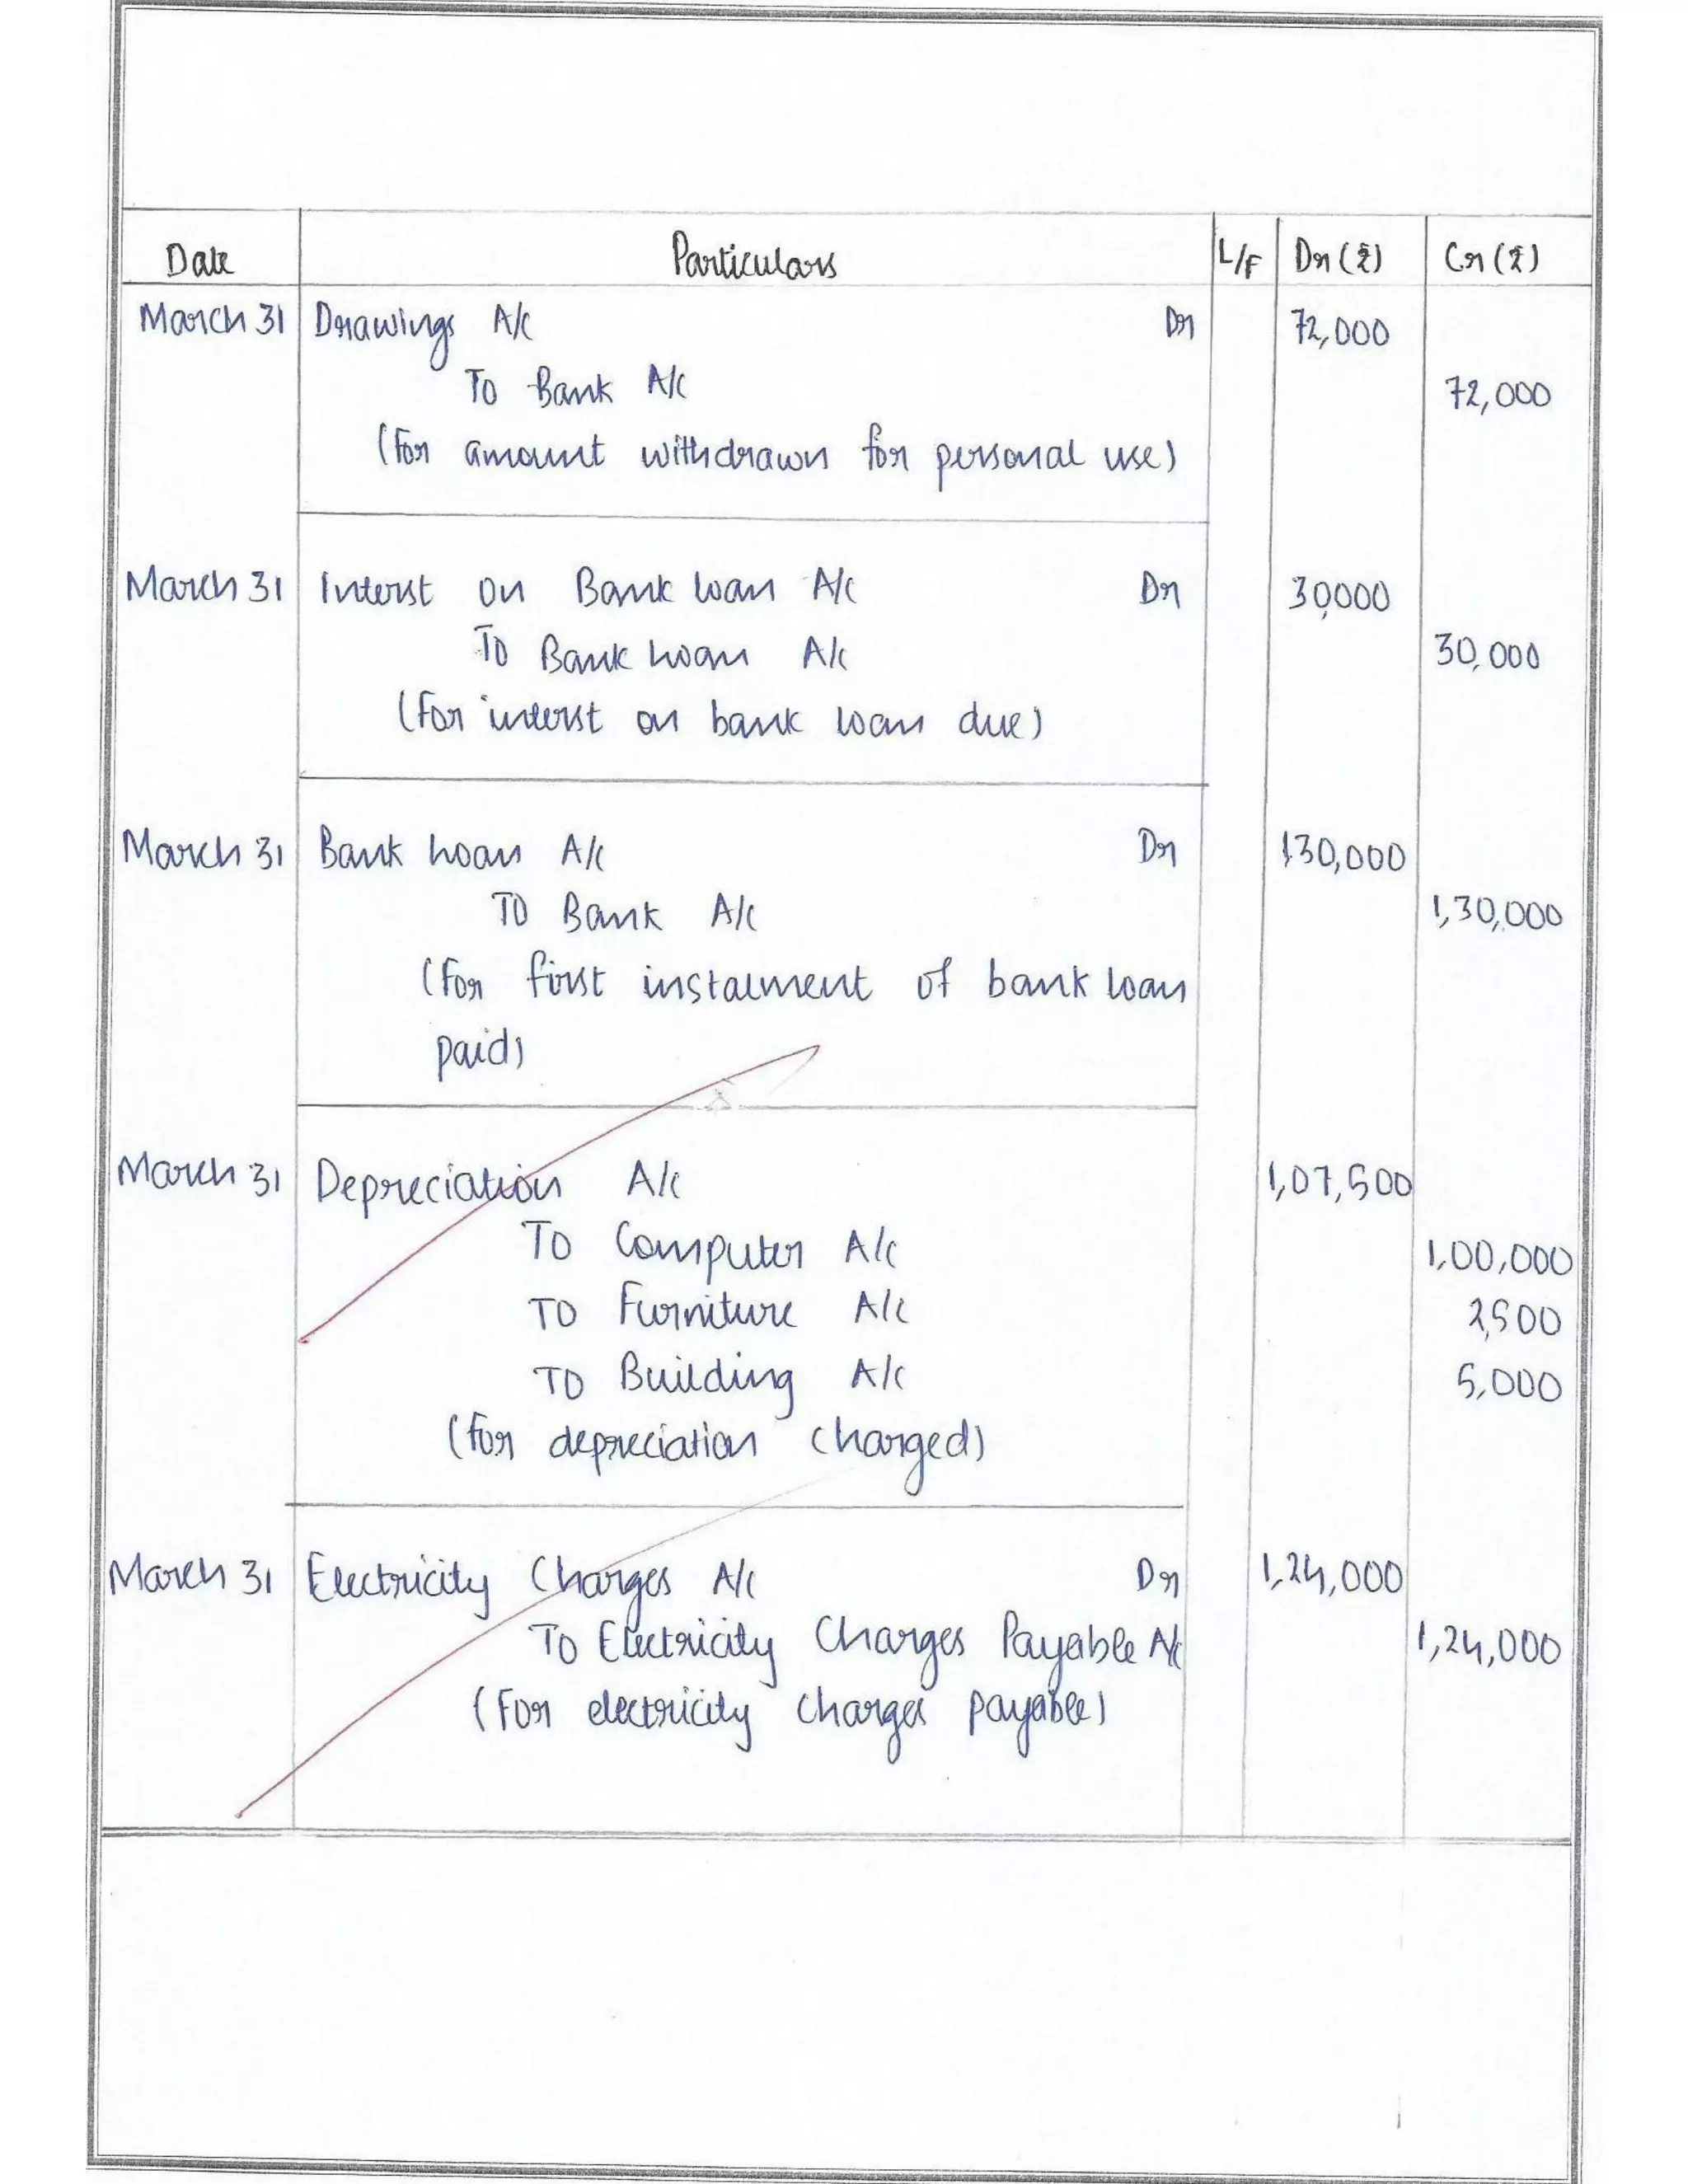 Date Particulars L/F Dr (₹) Cr (₹)
March 31 Drawings A/c Dr 72,000
To Bank A/c 72,000
(For amount withdrawn for personal use)
March 31 Interst on Bank loan A/c Dr 30,000
To Bank Loan A/c 30,000
(For interst on bank loan due)
March 31 Bank Loan A/c Dr 130,000
To Bank A/c 1,30,000
(For first instalment of bank loan
paid)
March 31 Depreciation A/c 1,07,500
To Computer A/c 1,00,000
To Furniture A/c 2,500
To Building A/c 5,000
(for depreciation charged)
March 31 Electricity Charges A/c Dr 1,24,000
To Electricity Charges Payable A/c 1,24,000
(For electricity charges payable)